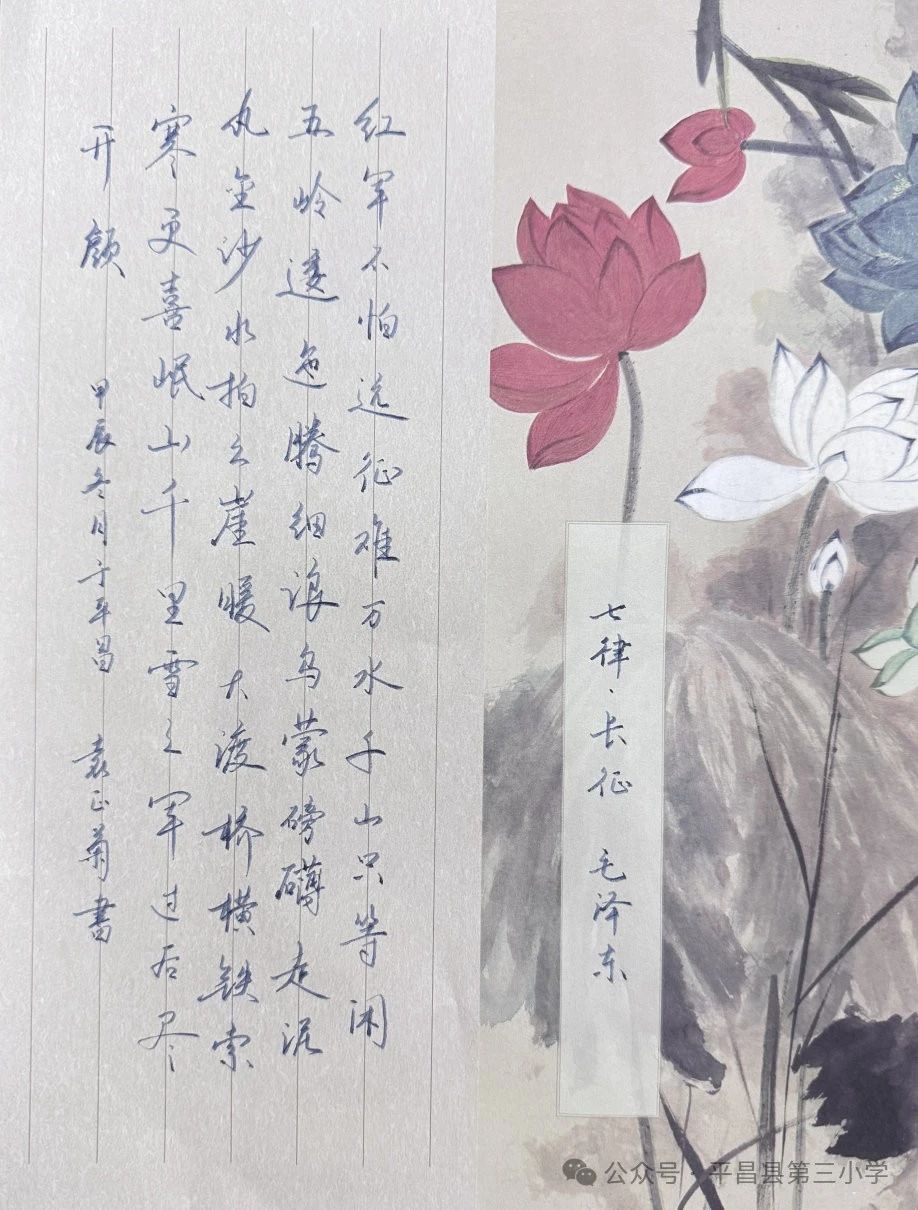 七律·长征 毛泽东
红军不怕远征难万水千山只等闲
五岭逶迤腾细浪乌蒙磅礴走泥
丸金沙水拍云崖暖大渡桥横铁索
寒更喜岷山千里雪三军过后尽
开颜 甲辰冬月于平昌 袁正菊书
公众号·平昌县第三小学